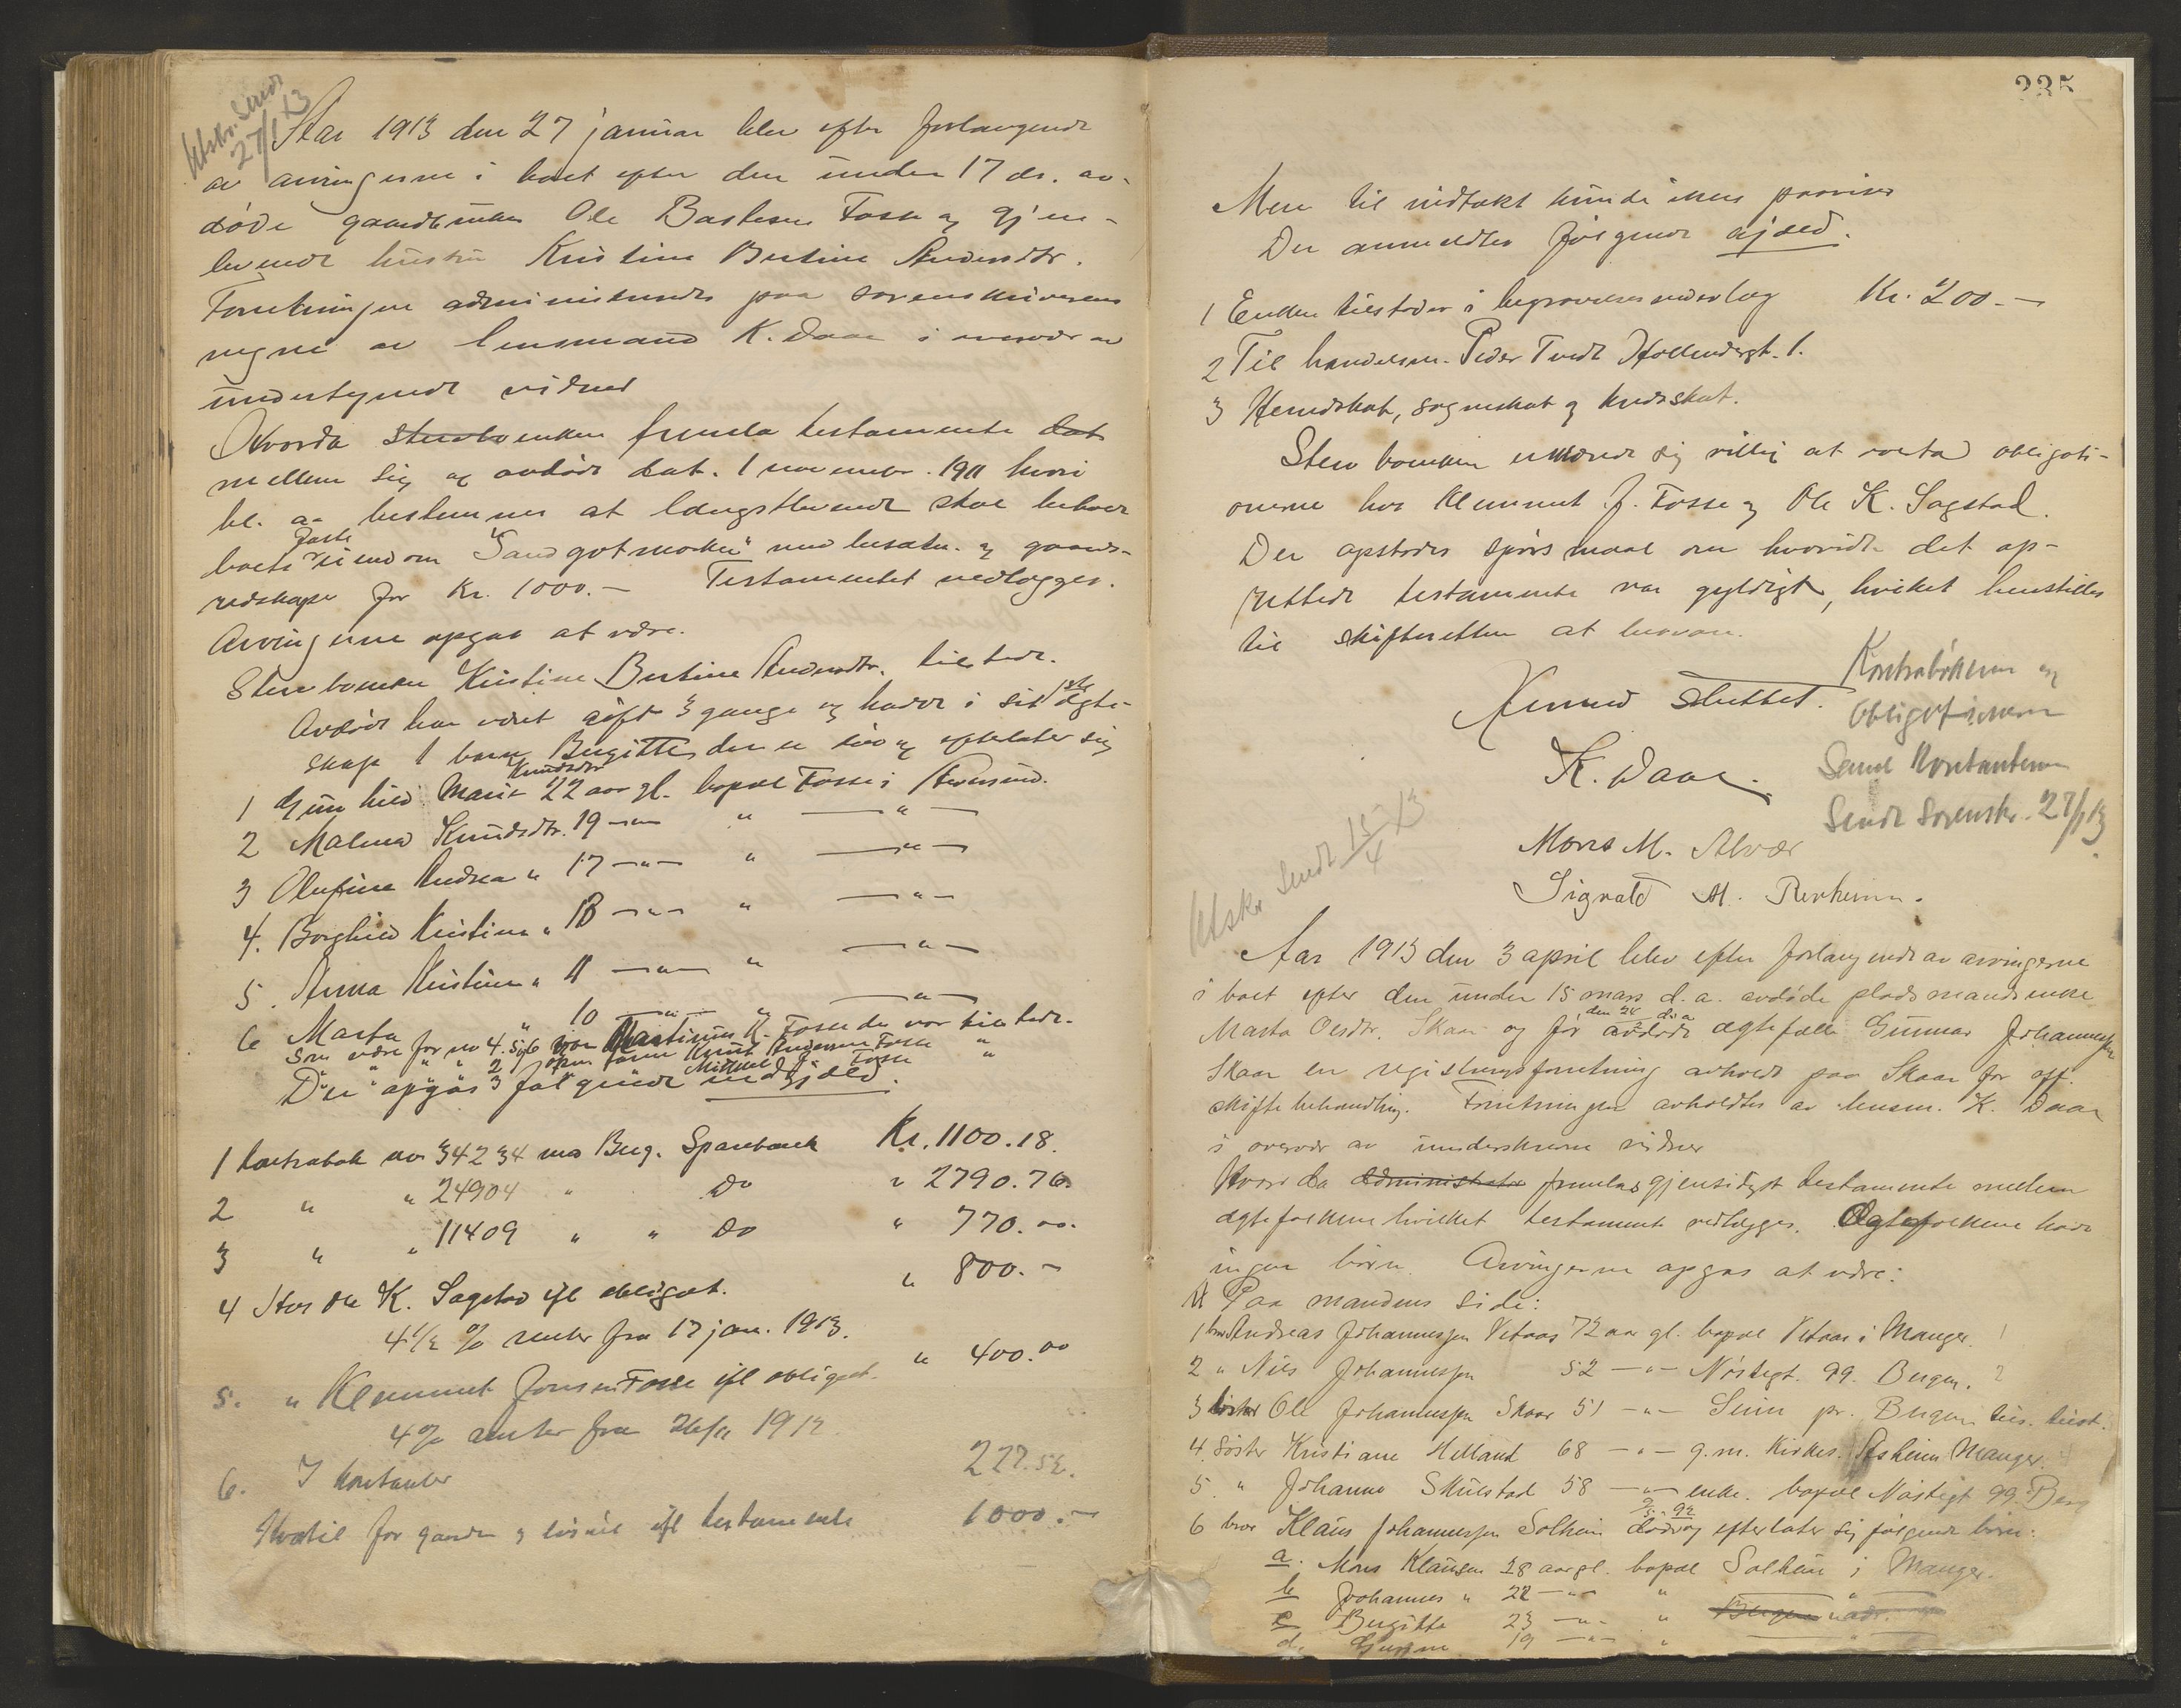 Utskr. Sendt
27/1 13
Aar 1913 den 27 januar blev efter forlangende
av arvingerne i boet efter den under 17 ds. av-
døde gaardbruker Ole Bastesen Fosse og gjen-
levende hustru Kristine Bertine Andersdtr.
Forretningen administrertes paa sorenskriverens
vegne av lensmand K. Daae i overvær av
undertegnede vidner
Hvorda Stervbo enken fremla testamente dat
mellem sig og avdøde dat. 1 november 1911 hvori
bl. a. bestemmes at længstlevende skal beholde
boets faste eiendom "Sandgotmarken" med besætn. og gaards-
redskaper for Kr. 1000.- Testamentet vedlægges.
Arvingerne opgav at være.
Stervboenken Kristine Bertine Andersdtr. tilstede.
Avdøde har været gift 3 gange og havde i sit 1ste egte-
skap 1 barn Birgitte, der er død og efterlater sig
1 Gunhild Marie Knudsdtr 22 aar gl. bopæl Fosse i Alversund.
2 Malena Knudsdtr. 19 -"- " -"-
3 Olufine Andrea " 17 -"- " -"-
4. Borghild Kristine " 13 -"- " -"-
5. Anna Kristine " 11 -"- " -"-
6 Marta " 10 -"- " -"-
Som værge for no 4. 5 og 6 Martinus K. Fosse der var tilstede.
" " " " 2 faren Knut Andersen Fosse "
" " " " 3 Mikkel Fosse "
Der opgaves følgende indgjæld.
1 Kontrabok no 34234 ved Berg. Sparebank Kr. 1100.18.
2 " " 24904 " Do " 2790.76.
3 " " 11409 " " Do " 770.00.
4 Hos Ole K. Sagstad ifl obligat. " 800.-
4 1/2 % renter fra 17 jan. 1913.
5. " Klemmet Jonsen Fosse ifl obligat. " 400.00
4% renter fra 26/11 1912
6. I kontanter 227.52.
Hvortil for gaarden og løsøre ifl testamente 1000.-
235
Mere til indtækt kunde ikke paavises
Der anmeldtes følgende gjæld.
1 Enken tilstodes i begravelsesudlæg Kr. 200.-
2 Til handelsm. Peder Tvedt Hollendergt. 1.
3 Herredskat, sogneskat og kredsskat.
Stervboenken erklærede sig villig at overta obligati-
onerne hos Klemmet J. Fosse og Ole K. Sagstad.
Der opstodes spørsmaal om hvorvidt det op-
rettede testamente var gyldigt, hvilket henstilles
til skifteretten at besvare.
Hermed sluttet.
K. Daae.
Mons M. Alvær
Sigvald M. Revheim.
Kontrabøkerne og
obligationerne
Samt Kontanterne
Sendt Sorenskr. 27/1 13
Utskr Sendt 15/4 13
Aar 1913 den 3 april blev efter forlangende av arvingerne
i boet efter den under 15 mars d. a. avdøde pladsmandsenke
Marta Olsdtr. Skaar og før den 24/2 d.a. avdøde egtefælle Gunnar Johannessen
Skaar en registreringsforretning avholdt paa Skaar for off.
skiftebehandling. Forretningen avholdtes av lensm. K. Daae
i overvær av underskrevne vidner
Hvorda administrator fremlas gjensidigt testamente mellem
egtefolkene hvilket testament vedlægges. Egtefolkene havde
ingen børn. Arvingerne opgas at være:
A Paa mandens side:
1 bror Andreas Johannessen Vetaas 72 aar gl. bopæl Vetaas i Manger. 1
2 " Nils Johannessen 52 -"- Nøstegt. 99. Bergen. 2
3 bror Ole Johannessen Skaar 51 -"- Seim pr. Bergen tils. tilst.
4. Søster Kristiane Helland 68 -"- g.m. Kirkes. Askeim Manger.
5. " Johanne Skulstad 58 -"- enke. bopæl Nøstegt 99. Berg
6 bror Klaus Johannessen Solheim død og efterlater sig følgende børn:
a. Mons Klausen 28 aar gl. bopæl Solheim i Manger.
b Johannes " 22 -"- " "
c Birgitte 23 -"- " Bergen
d. 19 -"- "